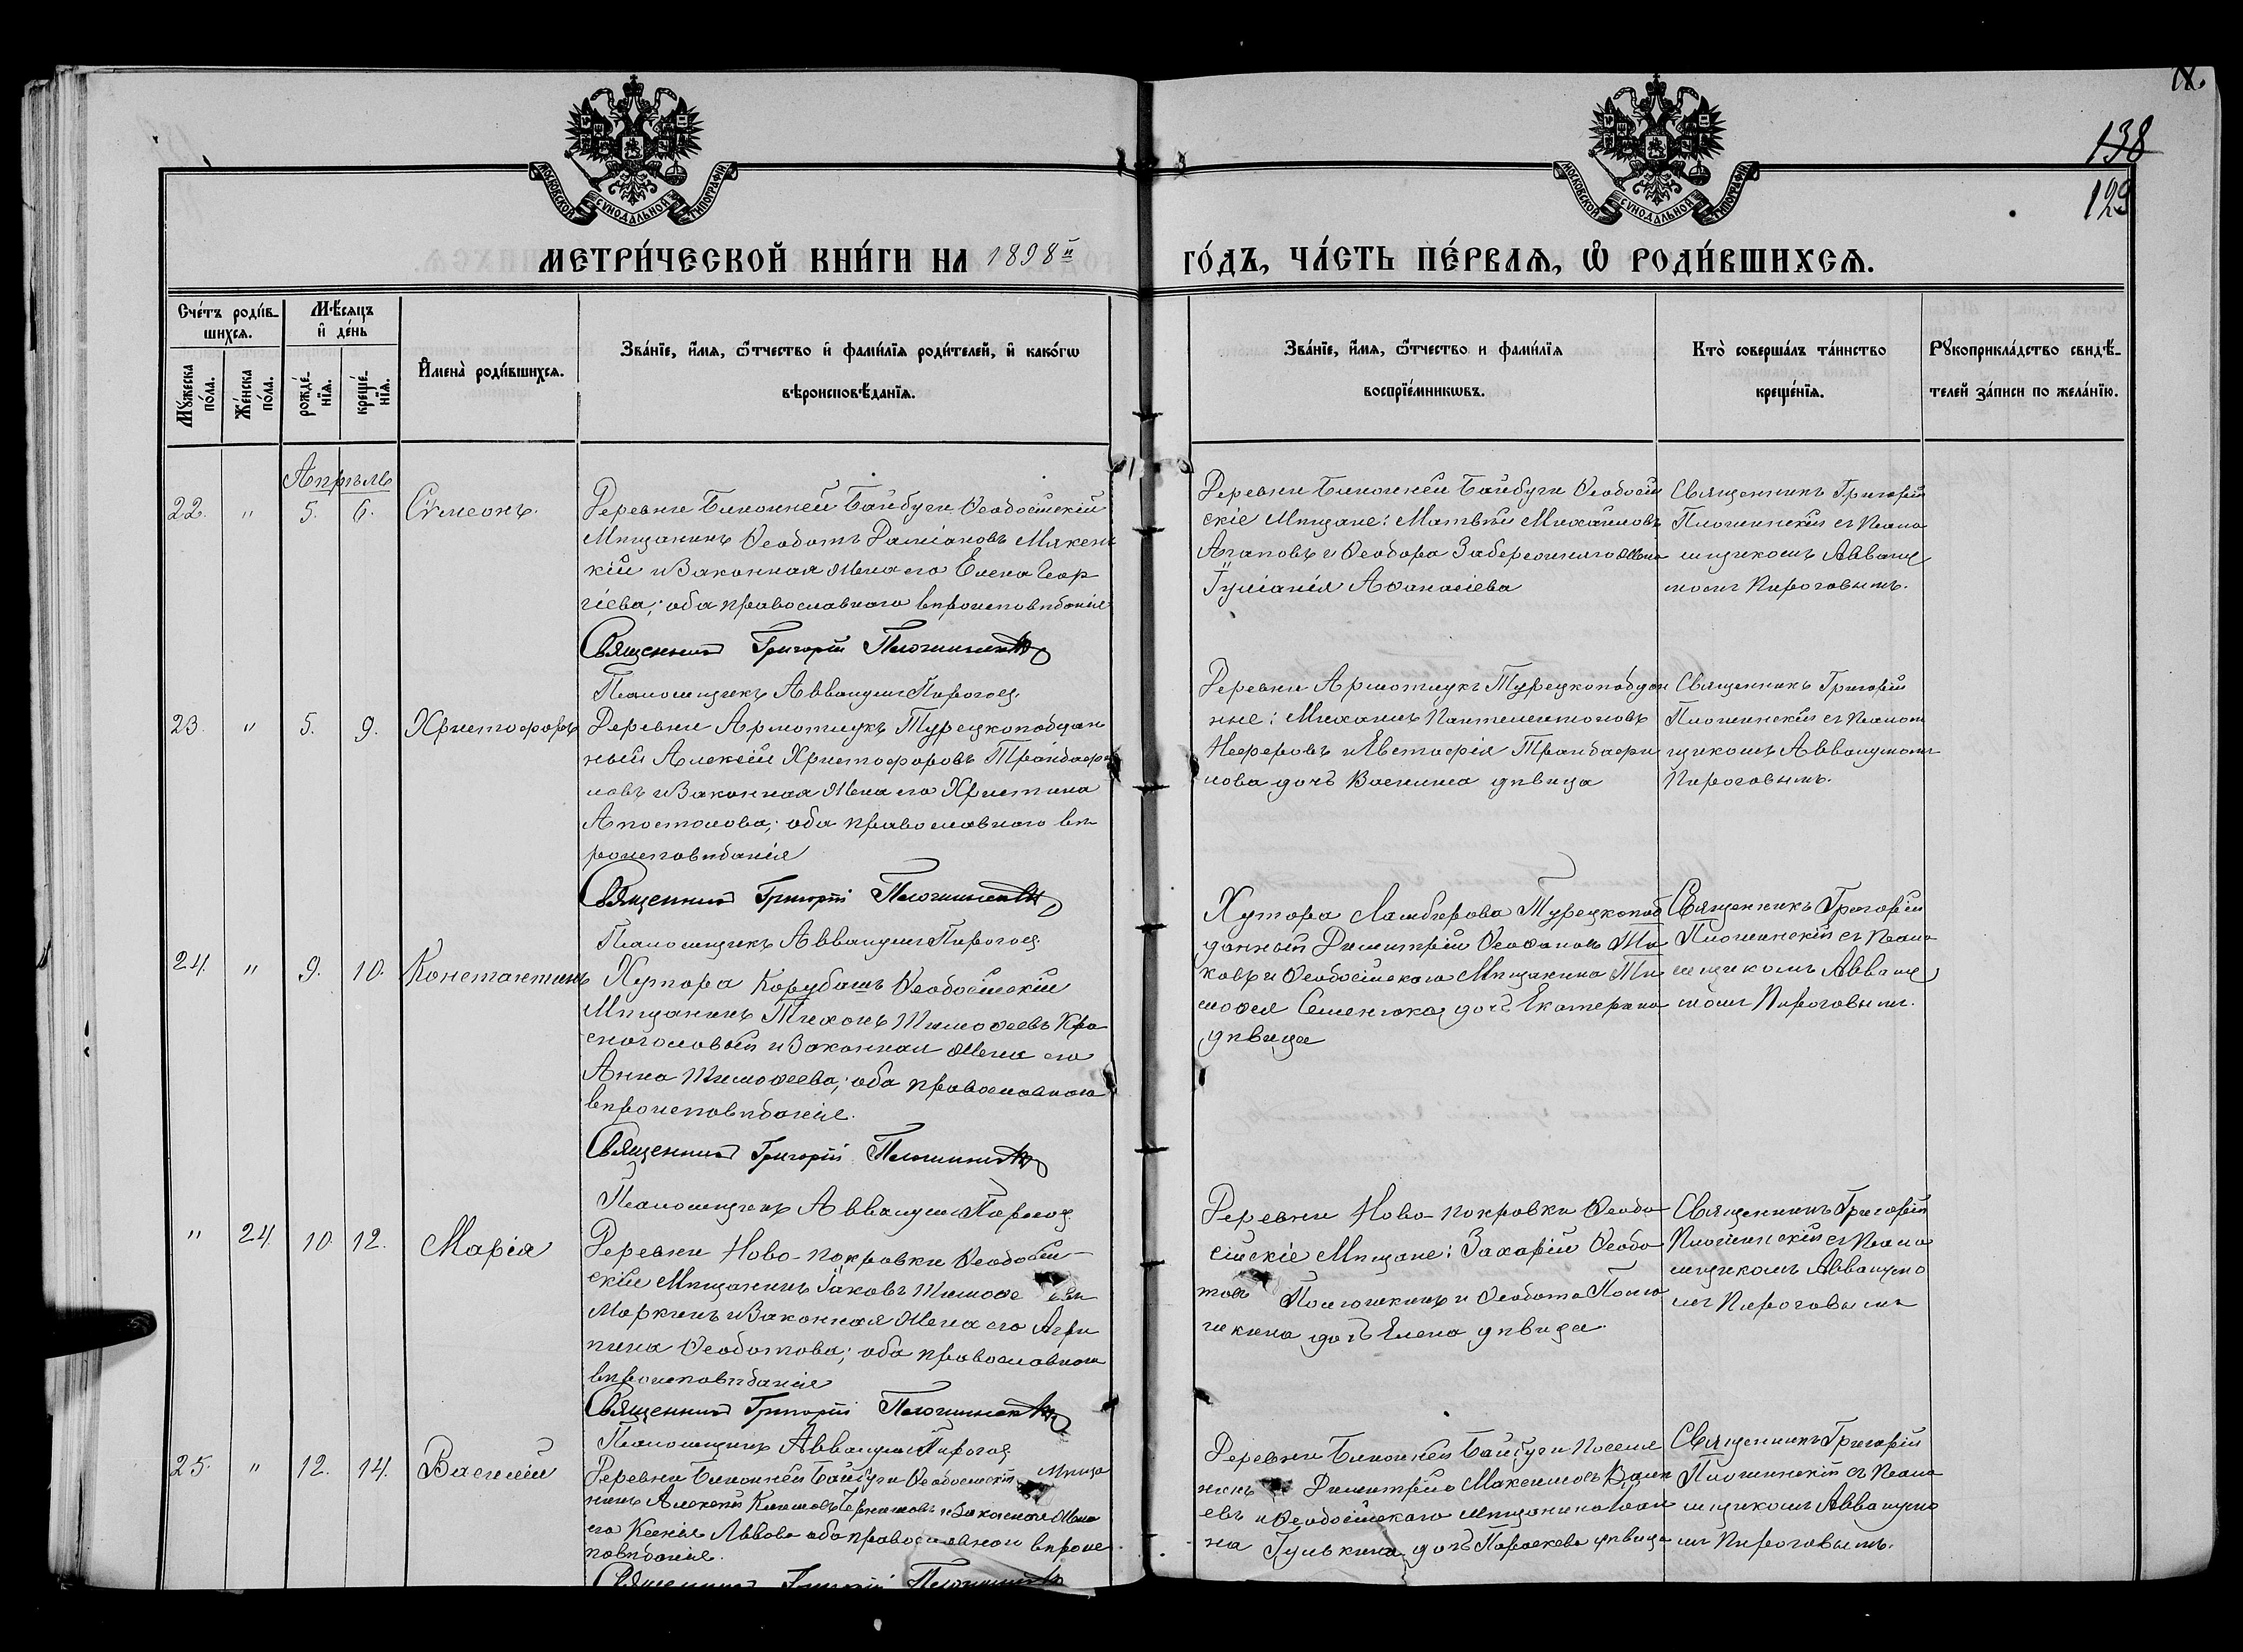 138
129
МОСКОВСКОЙ СѴНОДАЛЬНОЙ ТИПОГРАФІИ
МОСКОВСКОЙ СѴНОДАЛЬНОЙ ТИПОГРАФІИ
МЕТРИ́ЧЕСКОЙ КНИ́ГИ НА 1898й ГО́ДЪ, ЧА́СТЬ ПЕ́РВАѦ, Ѡ҆ РОДИ́ВШИХСѦ.
Сче́тъ роди́в-
шихсѧ.
Мꙋжеска по́ла.
Же́нска по́ла.
Мѣ́сѧцъ
и҆ де́нь
рожде́-
нїѧ.
креще́-
нїѧ.
И҆мена̀ роди́вшихсѧ.
Зва́нїе, и҆́мѧ, ѻ҆́тчество и҆ фами́лїѧ роди́телей, и҆ како́гѡ
вѣроисповѣ́данїѧ.
Зва́нїе, и҆́мѧ, ѻ҆́тчество и фами́лїѧ
воспрїе́мникѡвъ.
Кто̀ соверша́лъ та́инство
креще́нїѧ.
Рꙋкоприкла́дство свидѣ́-
телей за́писи по жела́нїю.
Апрѣль
22. " 5. 6. Сѵмеонъ.
Деревни Ближней Байбуги Ѳеодосійскій
Мѣщанинъ Ѳеодотъ Даміановъ Мякень
кій и Законная Жена его Елена Геор
гіева; оба православнаго вѣроисповѣданія
Священникъ Григорій
Псаломщикъ Аввакумъ Пирогов
Деревни Ближней Байбуги Ѳеодосій
скіе Мѣщане: Матвѣй Михаиловъ
Агаповъ и Ѳеодора Забережнаго Жена
Іуліанія Аѳанасіева
Священникъ Григорій
съ Псало
мщикомъ Авваку
момъ Пироговымъ.
23. " 5. 9. Христофоръ
Деревни Армутлукъ Турецкоподдан
ный Алексѣй Христофоровъ
ловъ и Законная Жена его Христина
Апостолова; оба православнаго вѣ
роисповѣданія
Священникъ Григорій
Псаломщикъ Аввакумъ Пирогов
Деревни Армутлукъ Турецкоподдан
ные: Михаилъ Пантелеимоновъ
и Евстафія
лова дочь Василиса дѣвица
Священникъ Григорій
съ Псалом
щикомъ Аввакумомъ
Пироговымъ.
24. " 9. 10. Константинъ
Хутора Корубашъ Ѳеодосійскій
Мѣщанинъ Тихонъ Тимоѳеевъ Кра
сноголовый и Законная Жена его
Анна Тимоѳеева; оба православнаго
вѣроисповѣданія.
Священникъ Григорій
Псаломщикъ Аввакумъ Пирогов
Хутора Ламбирова Турецкопод
данный Димитрій
ковъ и Ѳеодосійскаго Мѣщанина Ти
моѳея Семенюка дочь Екатерина
дѣвица
Священникъ Григорій
съ Псало
мщикомъ Авваку
момъ Пироговымъ.
" 24. 10 12. Марія
Деревни Ново-Покровки Ѳеодосій-
скій Мѣщанинъ Іаковъ Тимоѳеевъ
Маркинъ и Законная Жена его Агри
пина Ѳеодотова; оба православнаго
вѣроисповѣданія
Священникъ Григорій
Псаломщикъ Аввакумъ Пирогов
Деревни Ново-Покровки Ѳеодо
сійскіе Мѣщане: Захарій Ѳеодо
товъ и Ѳеодота
дочь Елена дѣвица.
Священникъ Григорій
съ Псало
мщикомъ Аввакумо
мъ Пироговымъ
25. " 12. 14. Василій
Деревни Ближней Байбуги Ѳеодосійскій Мѣща
нинъ Алексѣй и Законная Жена
его Ксенія Львова оба православнаго вѣроис
повѣданія.
Священникъ Григорій
Деревни Ближней Байбуги Поселя
нинъ Димитрій Максимовъ
евъ и Ѳеодосійскаго мѣщанина Іоан
на Гулькина дочь Параскева дѣвица
Священникъ Григорій
съ Псало
мщикомъ Аввакумо
мъ Пироговымъ.